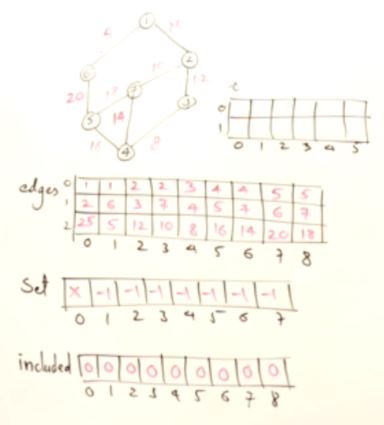 1
5
25
6
2
20
18
7
12
5
14
3
16
8
4
t
0
1
0 1 2 3 4 5
edges 0 1 1 2 2 3 4 4 5 5
1 2 6 3 7 4 5 7 6 7
2 25 5 12 10 8 16 14 20 18
0 1 2 3 4 5 6 7 8
Set X -1 -1 -1 -1 -1 -1 -1
0 1 2 3 4 5 6 7
included 0 0 0 0 0 0 0 0 0
0 1 2 3 4 5 6 7 8